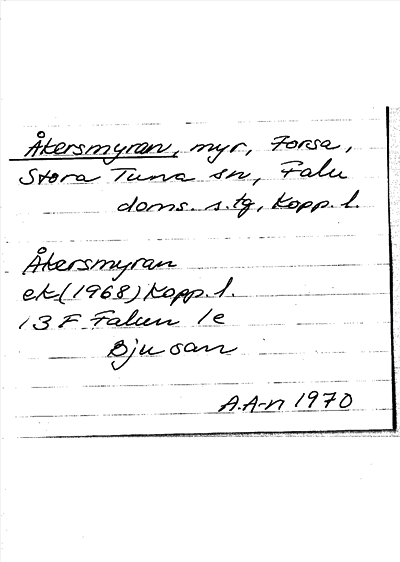 Åkersmyran, myr, Forsa,
Stora Tuna sn, Falu
doms. s. tg, Kopp. l.
Åkersmyran
ek (1968) Kopp. l.
13 F Falun 1e
Bjusan
A.A-n 1970